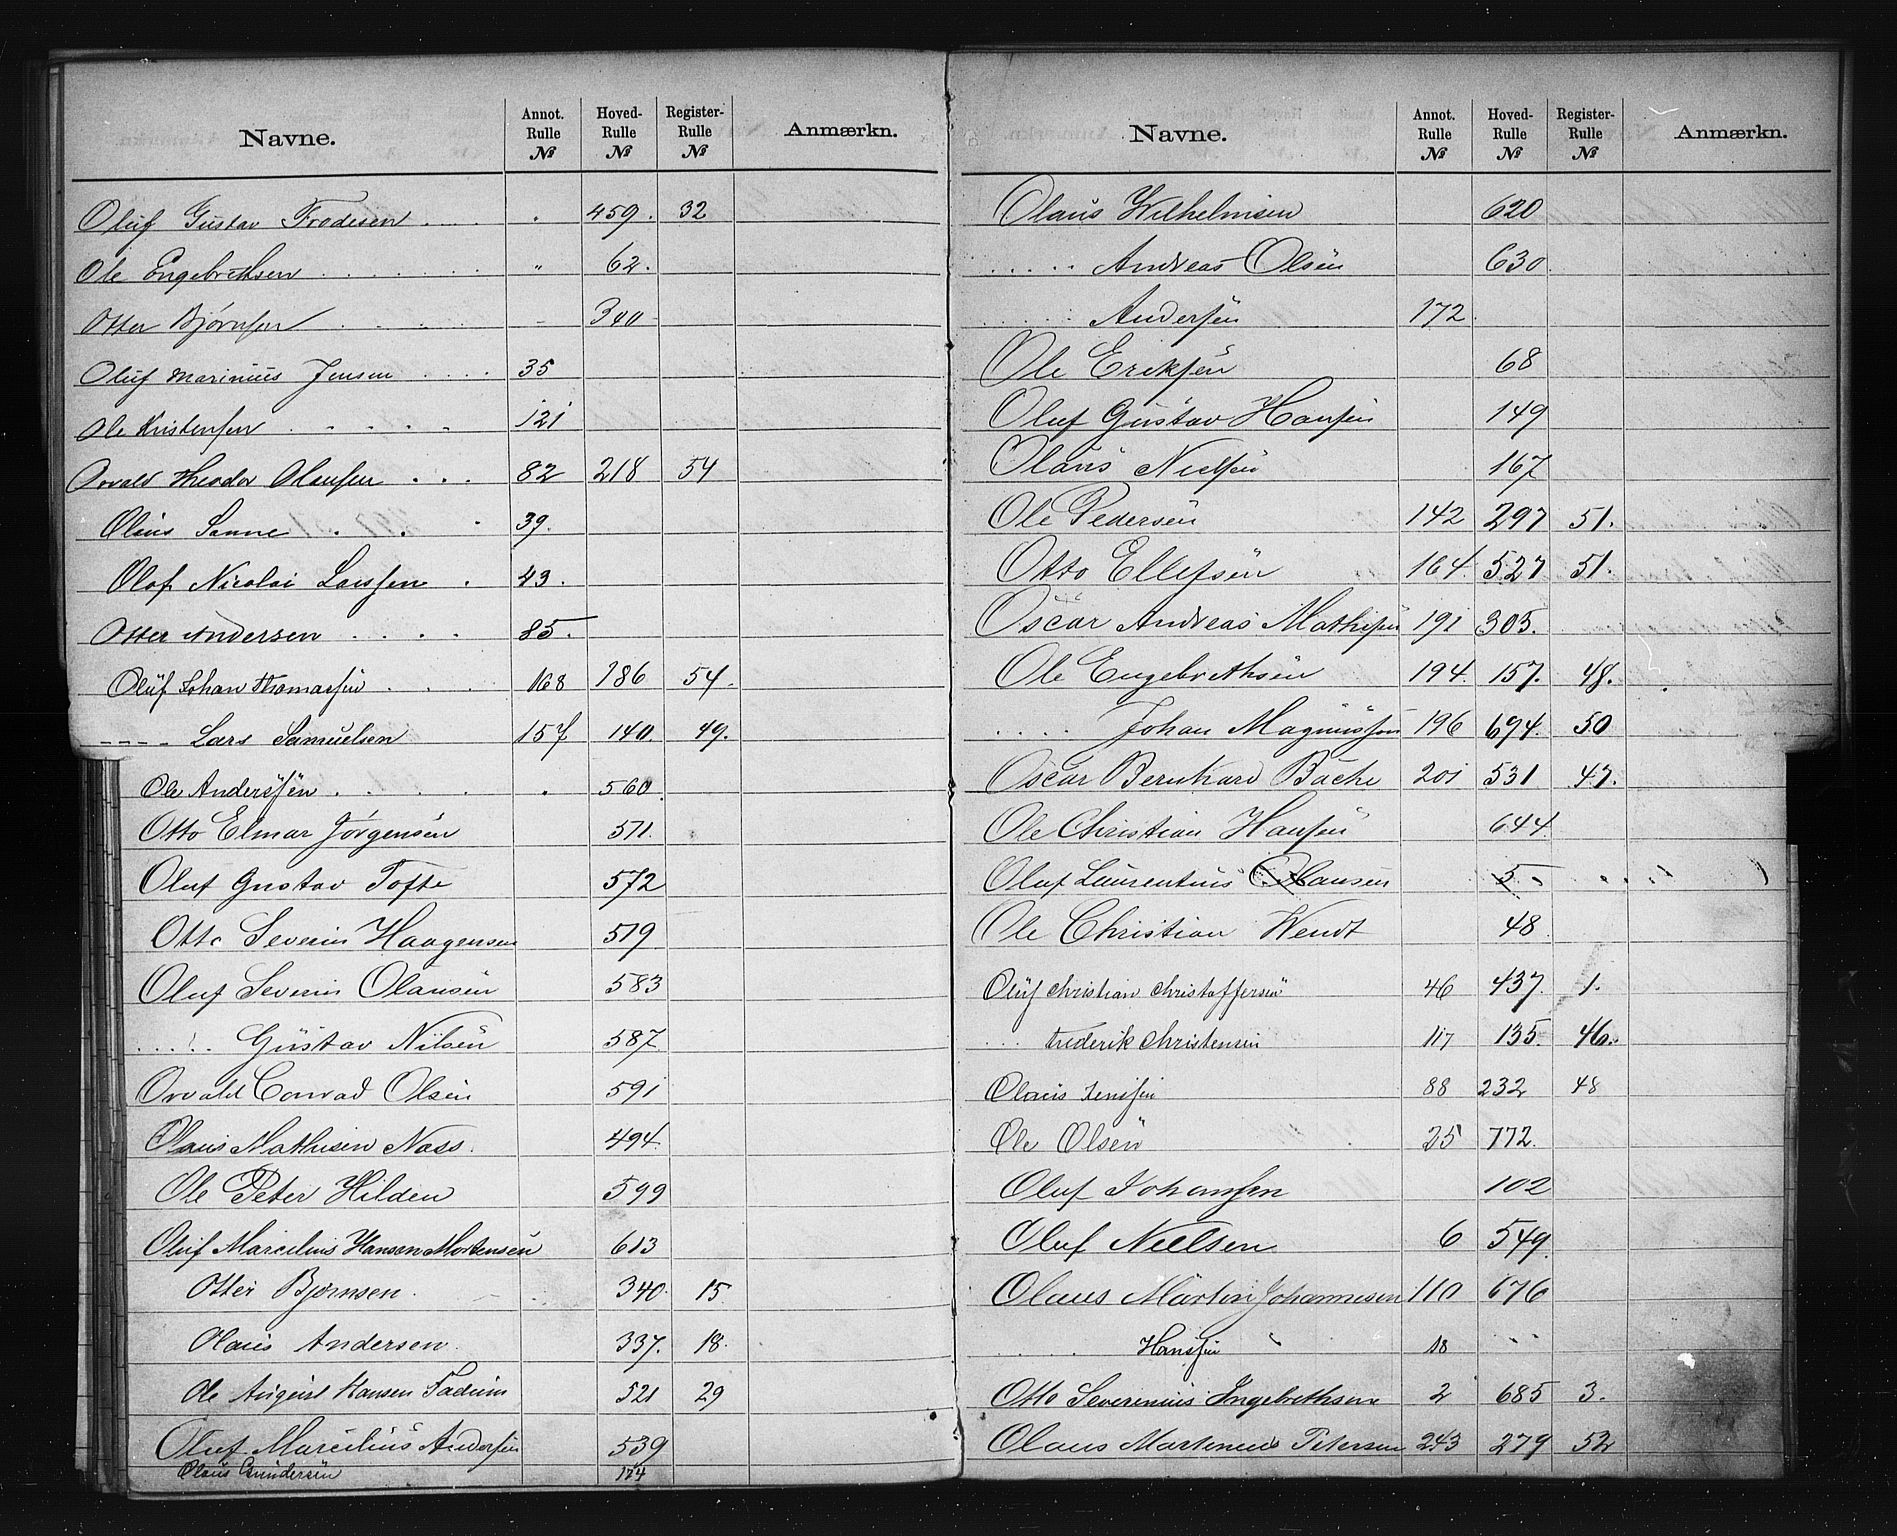 Navne. Annot. Rulle № Hoved-Rulle № Register-Rulle № Anmærkn.
Oluf Gustav Frodesen . . . . " 459. 32
Ole Engebrethsen . . . . . . " 62.
Otter Bjørnsen . . . . - 340
Oluf Marinius Jensen . . . . 35
Ole Kristensen . . . . . 121
Osvald Theodor Olausen . . . 82 218 54
Olaus Sanne . . . 39.
Olof Nicolai Larssen . 43.
Otter Andersen . . . . 85.
Oluf Johan Thomassen . . . . 168 186 54.
- - - - Lars Samuelsen 157 140. 49.
Ole Anderssen . . . . . 560.
Otto Elmar Jørgensen 571.
Oluf Gustav Tofte 572
Otto Severin Haagensen 579
Oluf Severin Olausen 583
. . . . . Gustav Nilsen 587
Osvald Conrad Olsen 591
Olaus Mathisen Nass. 494.
Ole Peter Hilden 599
Oluf Marcelius Hansen Mortensen 613
Otter Bjørnsen. 340. 15.
Olaus Andersen. 337. 18.
Ole August Hansen Fadum 521 29
Oluf Marcelius Andersen 539
Olaus Gundersen 174
Navne. Annot. Rulle № Hoved-Rulle № Register-Rulle № Anmærkn.
Olaus Wilhelmsen 620
. . . . . Andreas Olsen 630.
. . . . . Andersen 172.
Ole Eriksen 68
Oluf Gustav Hansen 149
Olaus Nielsen 167
Ole Pedersen 142 297 51.
Otto Ellefsen 164. 527 51.
Oscar Andreas Mathisen 191 305.
Ole Engebrethsen 194. 157. 48.
. . . . Johan Magnussen 196 694. 50
Oscar Bernhard Bache 201 531 47.
Ole Christian Hansen 644.
Oluf Laurentius Hansen 5
Ole Christian Wendt 48
Oluf Christian Christoffersen 46 437. 1.
. . . Frederik Christensen 117 135. 46.
Olaus Jenssen 88 232 48
Ole Olsen 25 772.
Oluf Johansen 102
Oluf Nielsen 6 549.
Olaus Martin Johannesen 110 676
. . . . Hanssen 18 " "
Otto Severenius Ingebrethsen 2 685 3.
Olaus Martinius Petersen 243 279 52